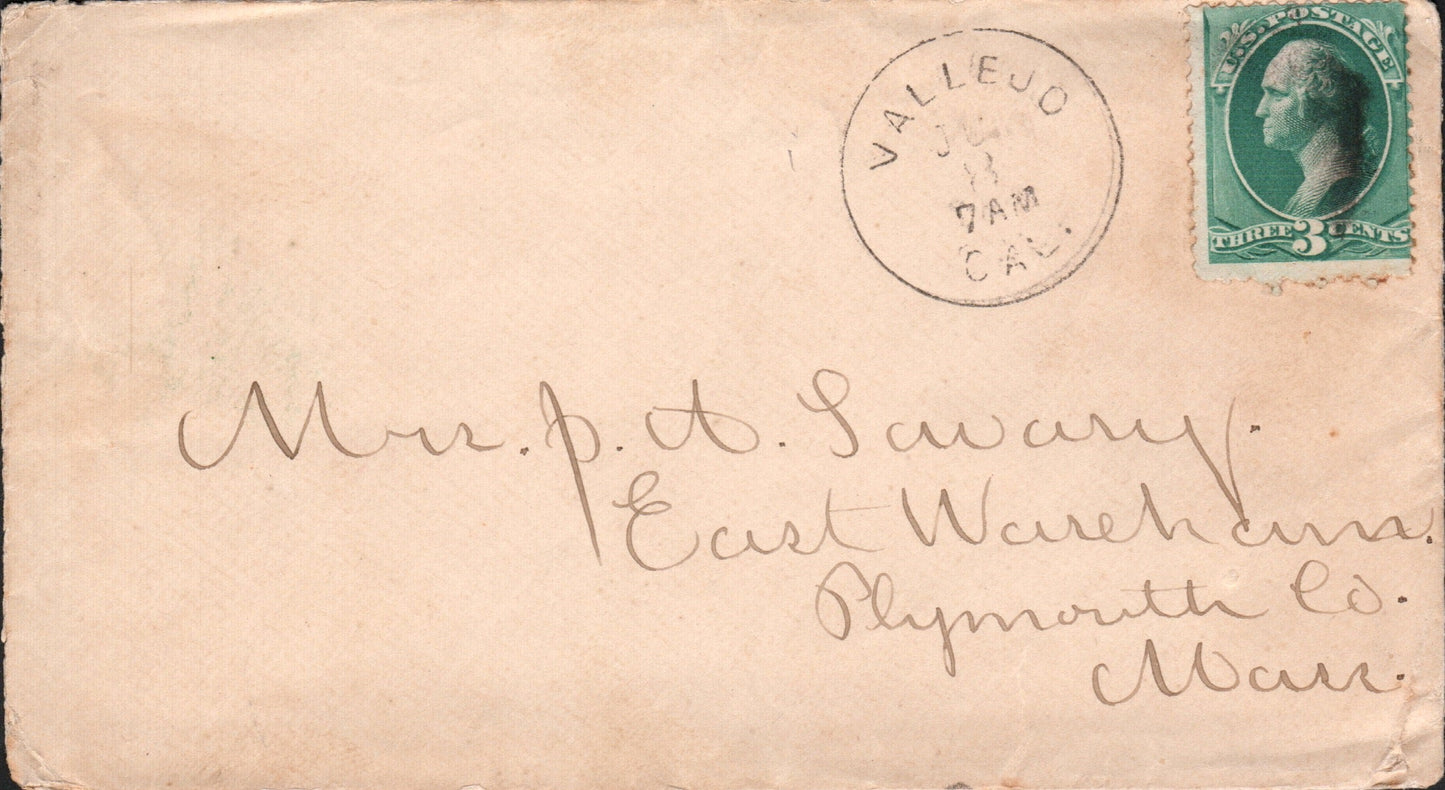 U.S. POSTAGE
THREE 3 CENTS
VALLEJO
7 AM
CAL.
Mrs. P. A. Savary.
East Wareham.
Plymouth Co.
Mass.